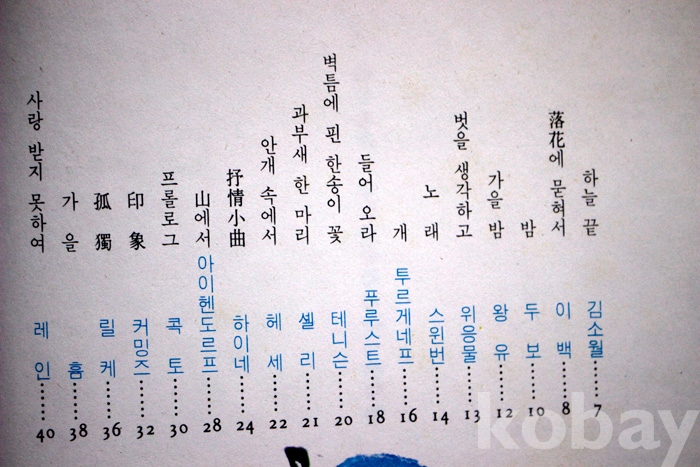 하늘 끝 김소월 ······ 7
落花에 묻혀서 이 백 ······ 8
밤 두 보 ······ 10
가을 밤 왕 유 ······ 12
벗을 생각하고 위응물 ······ 13
노 래 스윈번 ······ 14
개 투르게네프 ······ 16
들어 오라 푸루스트 ······ 18
벽틈에 핀 한송이 꽃 테니슨 ······ 20
과부새 한 마리 셸 리 ······ 21
안개 속에서 헤 세 ······ 22
抒情小曲 하이네 ······ 24
山에서 아이헨도르프 ······ 28
프롤로그 콕 토 ······ 30
印 象 커밍즈 ······ 32
孤 獨 릴 케 ······ 36
가 을 흄 ······ 38
사랑 받지 못하여 레 인 ······ 40
kobay